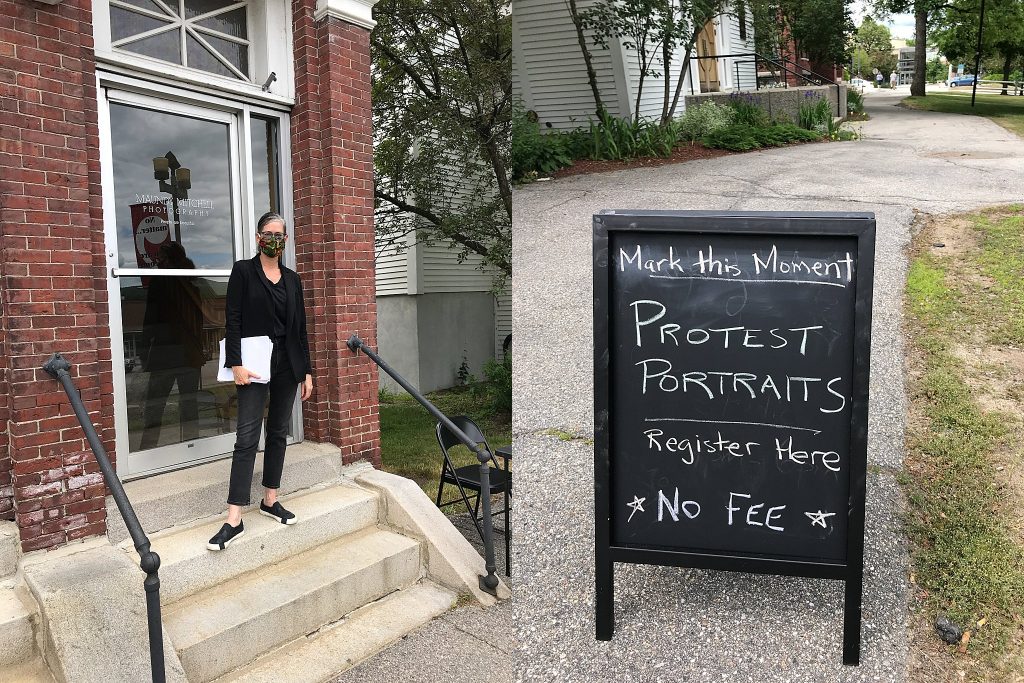 MAUNDY MITCHELL
PHOTOGRAPHY
No
matter.
Mark this Moment
PROTEST
PORTRAITS
Register Here
NO FEE